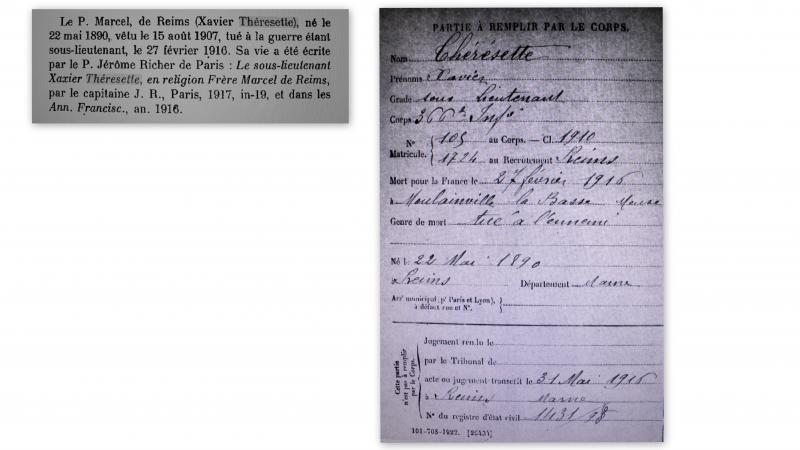 Le P. Marcel, de Reims (Xavier Théresette), né le
22 mai 1890, vêtu le 15 août 1907, tué à la guerre étant
sous-lieutenant, le 27 février 1916. Sa vie a été écrite
par le P. Jérôme Richer de Paris : Le sous-lieutenant
Xaxier Théresette, en religion Frère Marcel de Reims,
par le capitaine J. R., Paris, 1917, in-19, et dans les
Ann. Francisc., an. 1916.
PARTIE À REMPLIR PAR LE CORPS.
Nom Thérésette
Prénoms Xavier
Grade sous Lieutenant
Corps 366e Infie
N° Matricule. 105 au Corps. — Cl. 1910
1724 au Recrutement Reims
Mort pour la France le 27 février 1916
à Moulainville la Basse Meuse
Genre de mort tué à l'ennemi
Né le 22 Mai 1890
à Reims Département Marne
Arrt municipal (pr Paris et Lyon),
à défaut rue et N°.
Cette partie n'est pas à remplir par le Corps.
Jugement rendu le
par le Tribunal de
acte ou jugement transcrit le 31 Mai 1916
à Reims Marne
N° du registre d'état civil 1431/98
101-708-1922. [26434]